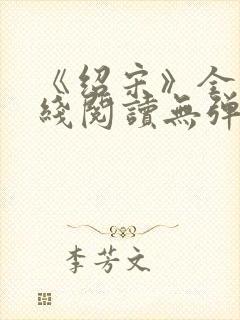 《绍宋》全
綫閱讀無彈
李芳文